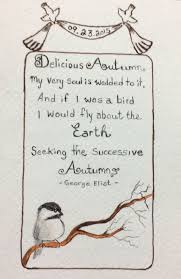 09.23.2015
Delicious Autumn
My very soul is wedded to it,
And if I was a bird
I would fly about the
Earth
Seeking the Successive
Autumns
- George Eliot -